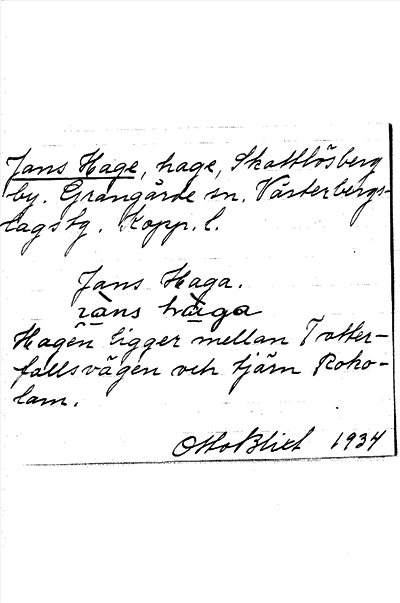 Jans Hage, hage, Skattlösberg
by. Grangärde sn. Västerbergs-
lags tg. Kopp. l.
Jans Haga.
hȧga
Hagen ligger mellan Totter-
fallsvägen och tjärn Roko-
lam.
Otto Blixt 1934